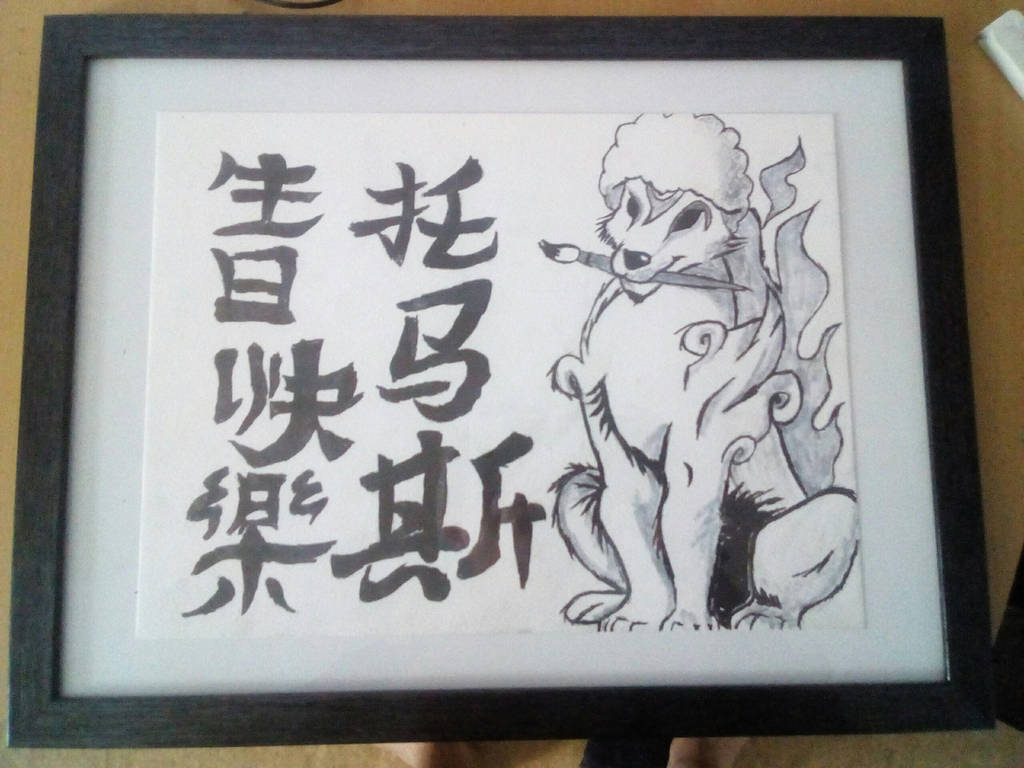 托马斯
生日快樂